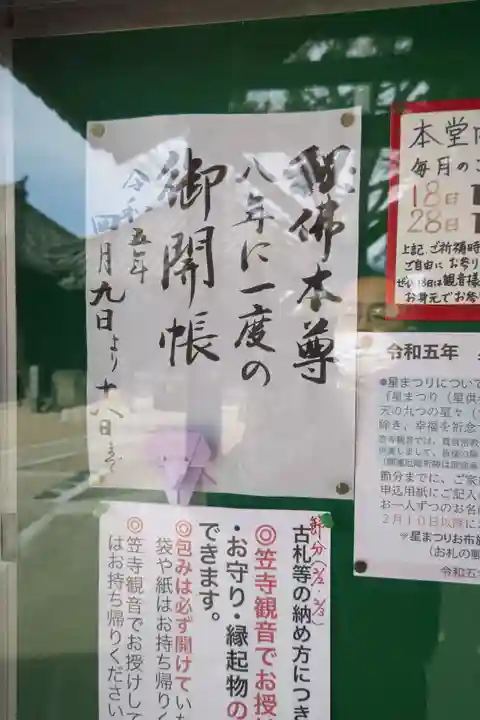 秘佛本尊
八年に一度の
御開帳
令和五年
四月九日より十八日まで
本堂内
毎月の
18日
28日
上記、ご祈祷時
ご自由にお参り
ぜひ18日は観音様
お身元でお参
令和五年
●星まつりについて
『星まつり(星供
天の九つの星々(
除き、幸福を祈念
節分までに、ご家
申込用紙にご記入
お一人ずつのお名
2月10日以降に
*星まつりお布施
(お札の
令和五
節分(2/2・2/3)
古札等の納め方につき
◎笠寺観音でお授け
・お守り・縁起物の
できます。
◎包みは必ず開けてい
袋や紙はお持ち帰りく
◎笠寺観音でお授けして
はお持ち帰りください